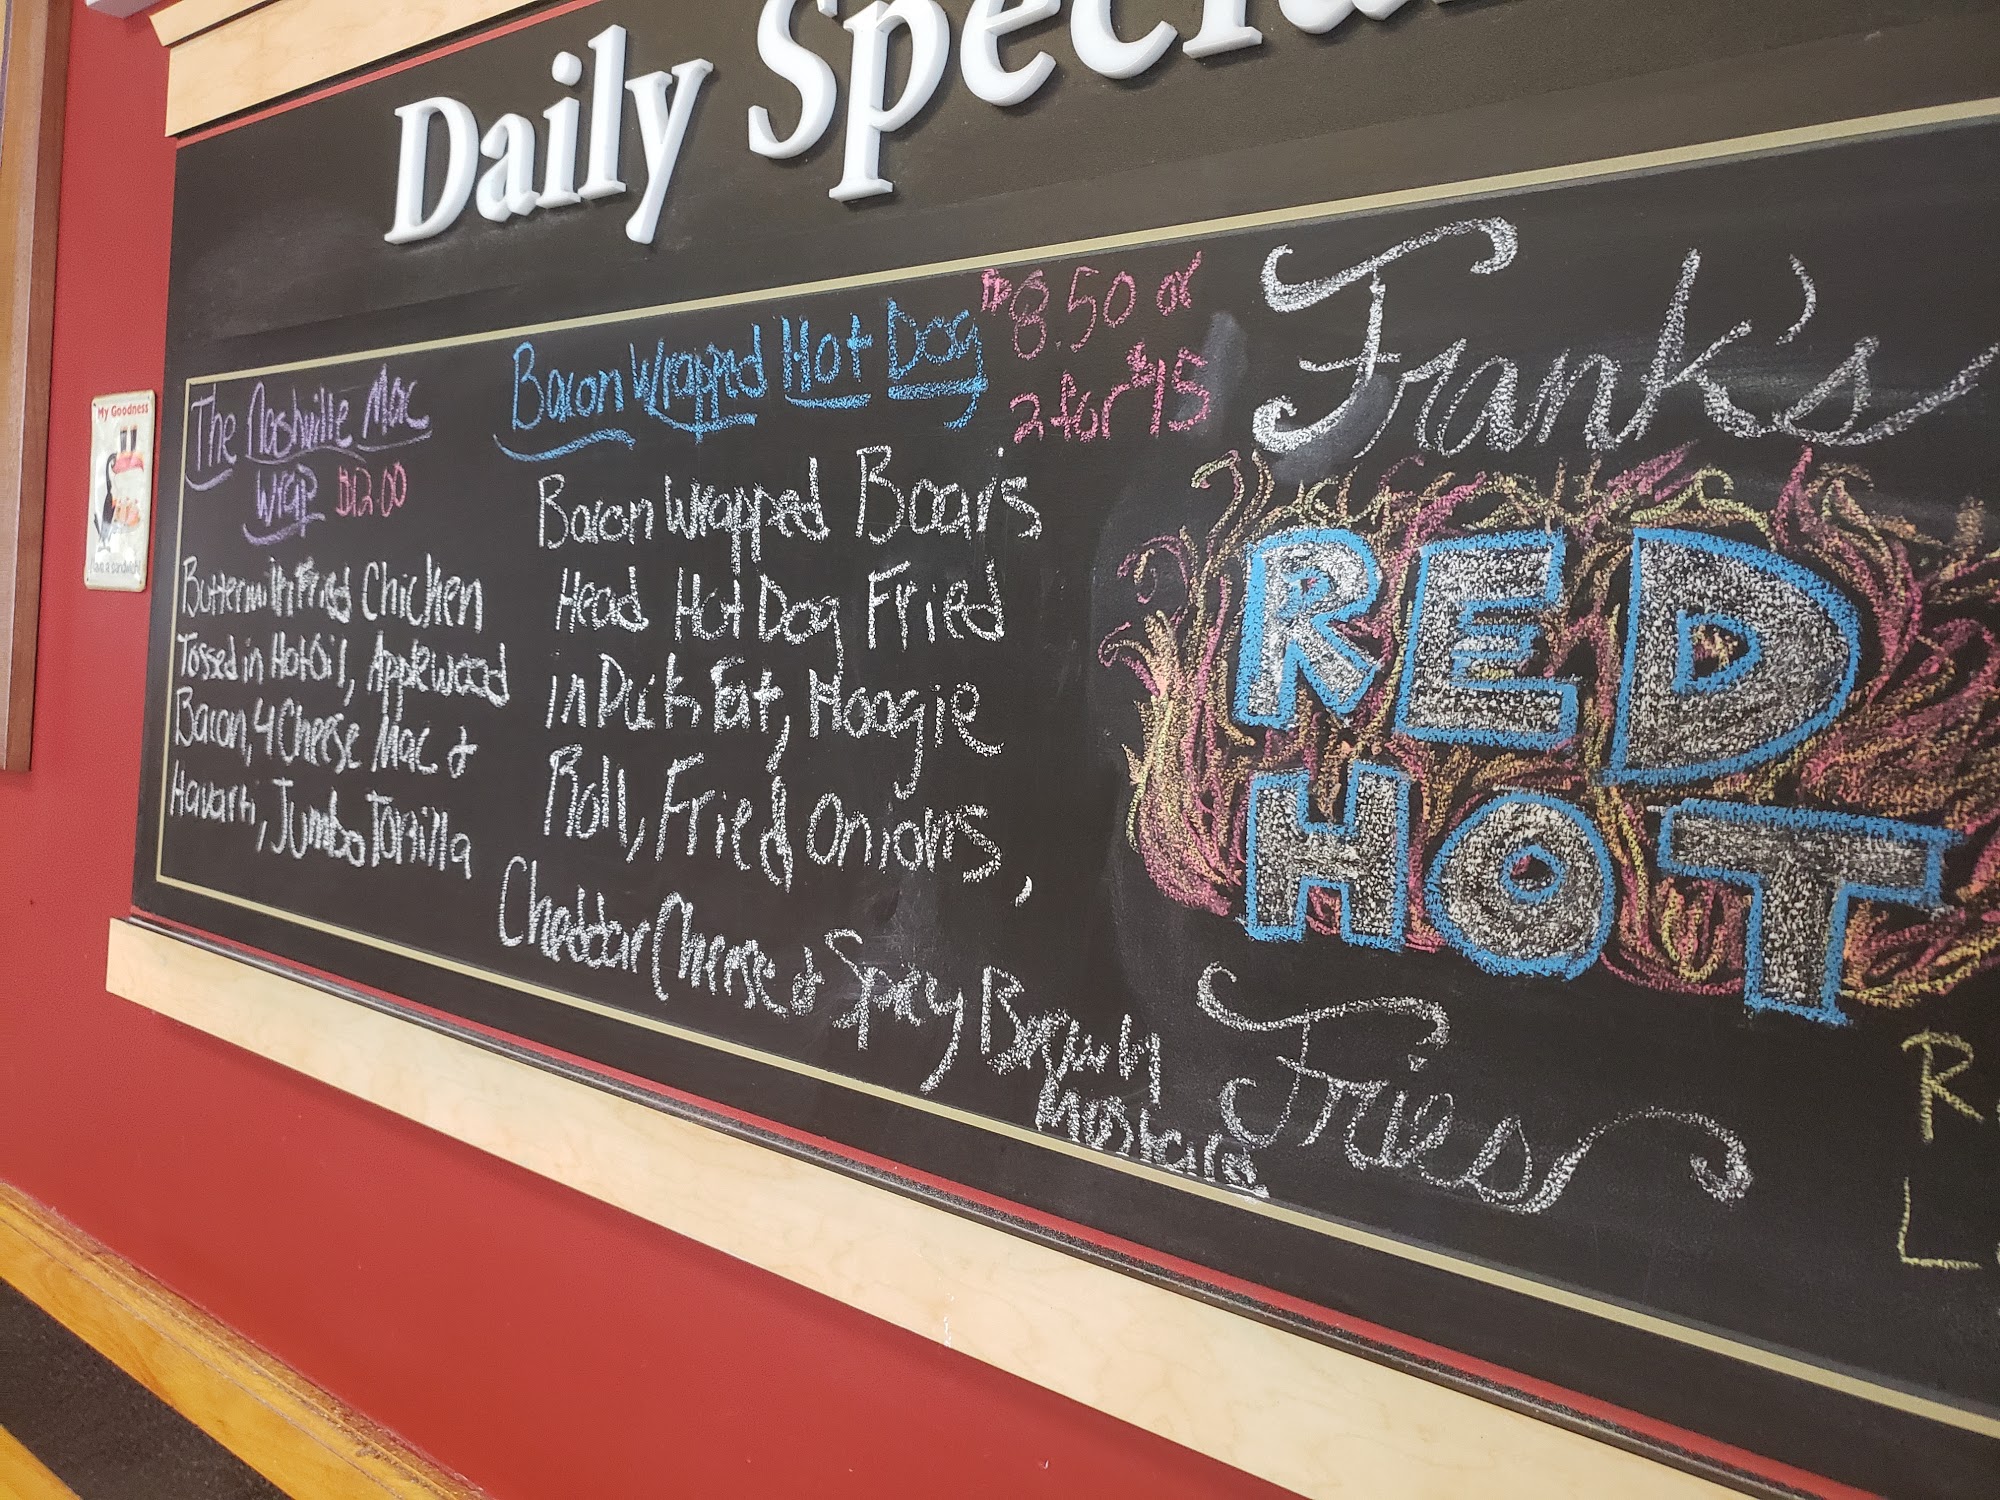 Daily Specia
The Nashville Mac
Wrap $12.00
Buttermilk Fried Chicken
Tossed in Hot Oil, Applewood
Bacon, 4 Cheese Mac &
Havarti, Jumbo Tortilla
Bacon Wrapped Hot Dog
$8.50 or
2 for $15
Bacon Wrapped Boars
Head Hot Dog Fried
in Duck Fat, Hoagie
Roll, Fried Onions,
Cheddar Cheese & Spicy
Mustard
Frank's
RED
HOT
Fries
R
L
My Goodness